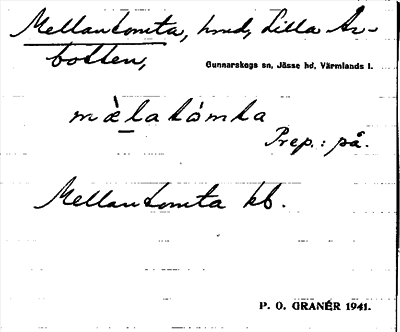 Mellantomta, hmd, Lilla År-
botten,
Gunnarskogs sn, Jösse hd, Värmlands l.
mὲ̀latómta
Prep.: på.
Mellantomta kb.
P. O. GRANÉR 1941.